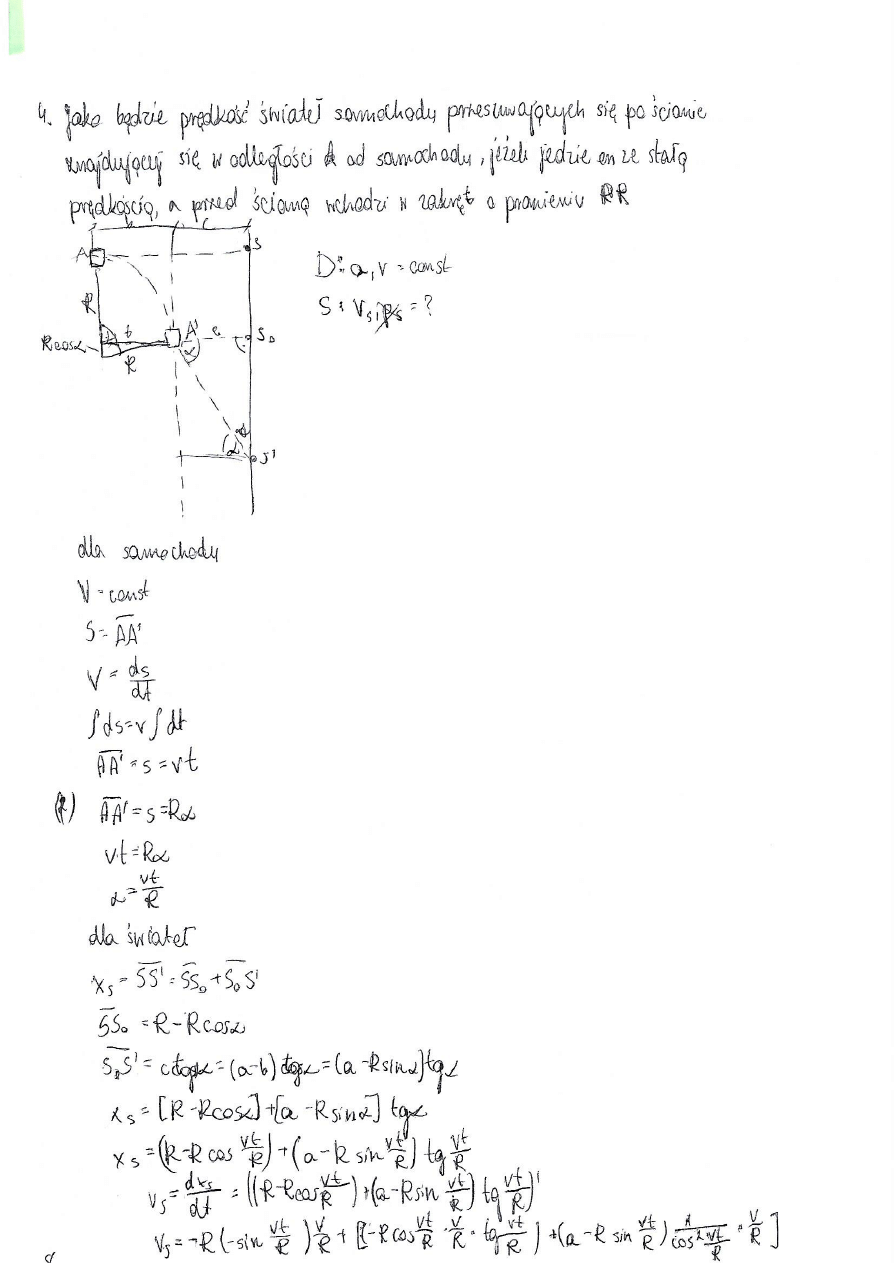 4. Jaka będzie prędkość świateł samochodu przesuwających się po ścianie
znajdującej się w odległości A od samochodu, jeżeli jedzie on ze stałą
prędkością, a przed ścianą wchodzi w zakręt o promieniu R
c
A S
R
b A' c S₀
Rcosα α
R
α S'
D: a, v = const
S: Vs = ?
dla samochodu
V = const
S = AA'
V = ds/dt
∫ds = v∫dt
AA' = s = vt
AA' = s = Rα
vt = Rα
α = vt/R
dla świateł
xs = SS' = SS₀ + S₀S'
SS₀ = R - Rcosα
S₀S' = c tgα = (a-b) tgα = (a - Rsinα) tgα
xs = [R - Rcosα] + [a - Rsinα] tgα
xs = (R - R cos vt/R) + (a - R sin vt/R) tg vt/R
vs = dxs/dt = ((R - Rcos vt/R) + (a - Rsin vt/R) tg vt/R)'
Vs = -R(-sin vt/R) v/R + [(-Rcos vt/R · v/R · tg vt/R) + (a - R sin vt/R) 1/cos² vt/R · v/R]